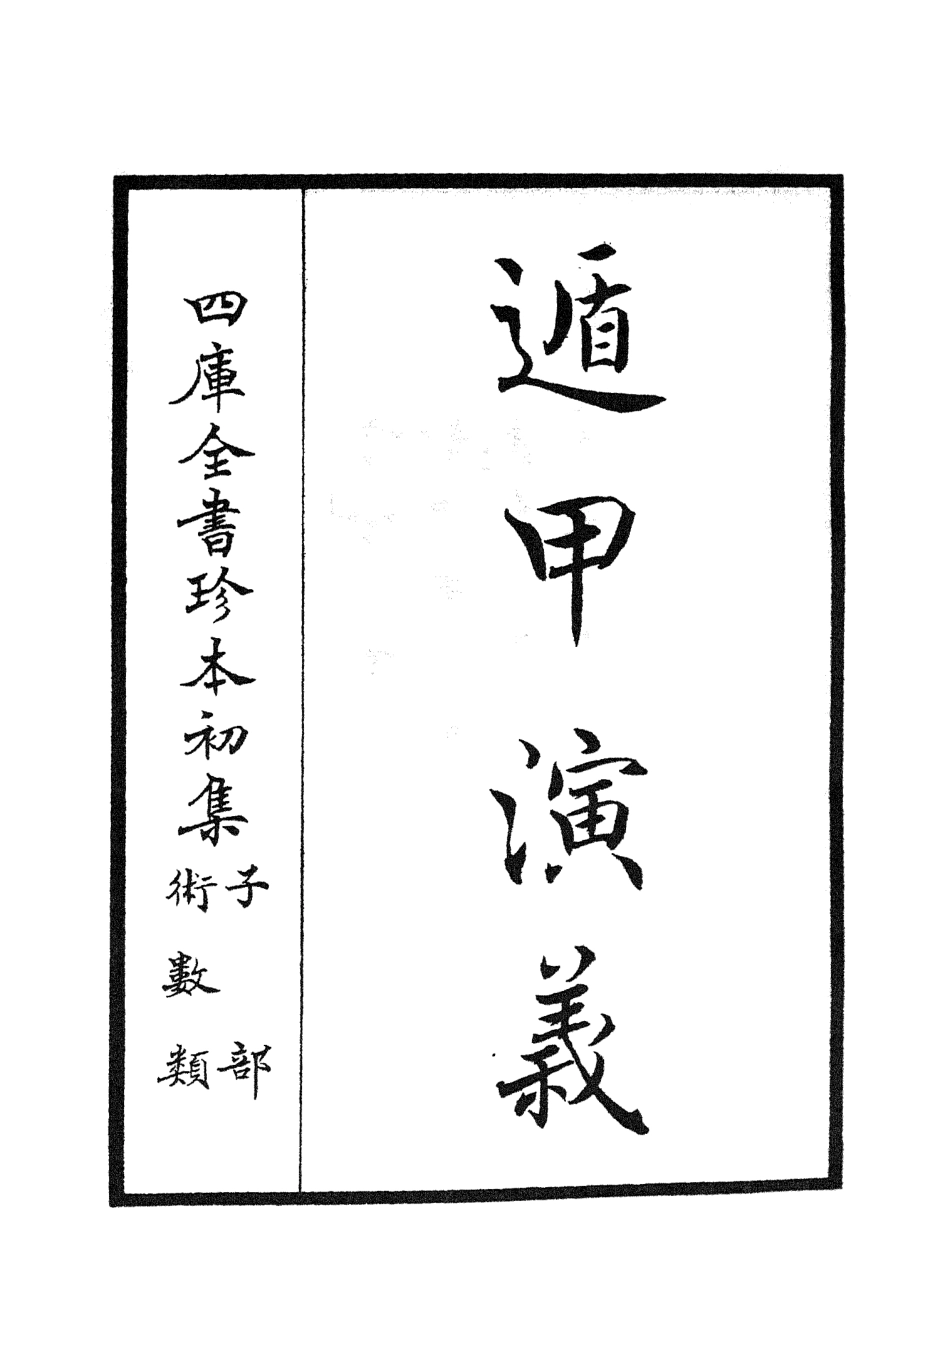 遁甲演義
四庫全書珍本初集
子部
術數類